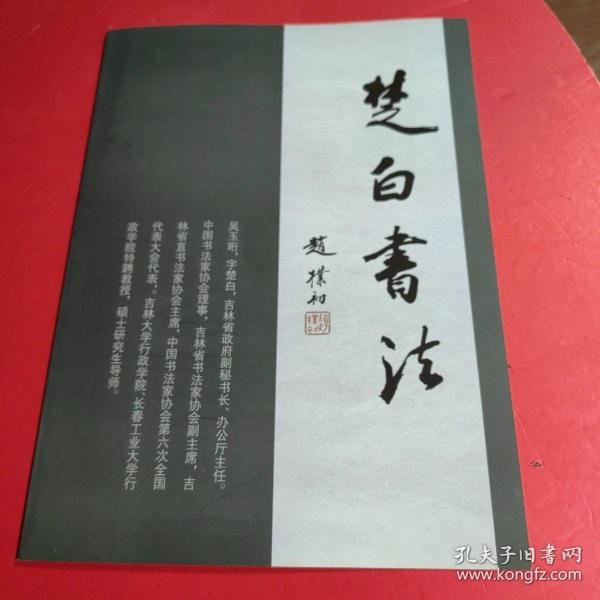 楚白書法
趙樸初
吴玉珩，字楚白，吉林省政府副秘书长、办公厅主任。
中国书法家协会理事，吉林省书法家协会副主席，吉
林省直书法家协会主席，中国书法家协会第六次全国
代表大会代表，。吉林大学行政学院、长春工业大学行
政学院特聘教授，硕士研究生导师。
孔夫子旧书网
www.kongfz.com